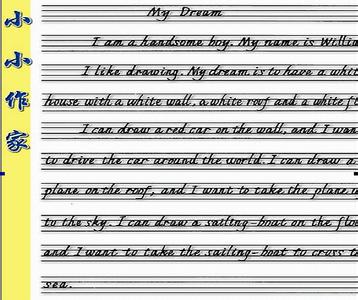 小小作家
My Dream
I am a handsome boy. My name is Willia
I like drawing. My dream is to have a whit
house with a white wall, a white roof and a white f
I can draw a red car on the wall, and I wan
to drive the car around the world. I can draw a
plane on the roof, and I want to take the plane
to the sky. I can draw a sailing-boat on the flo
and I want to take the sailing-boat to cross t
sea.